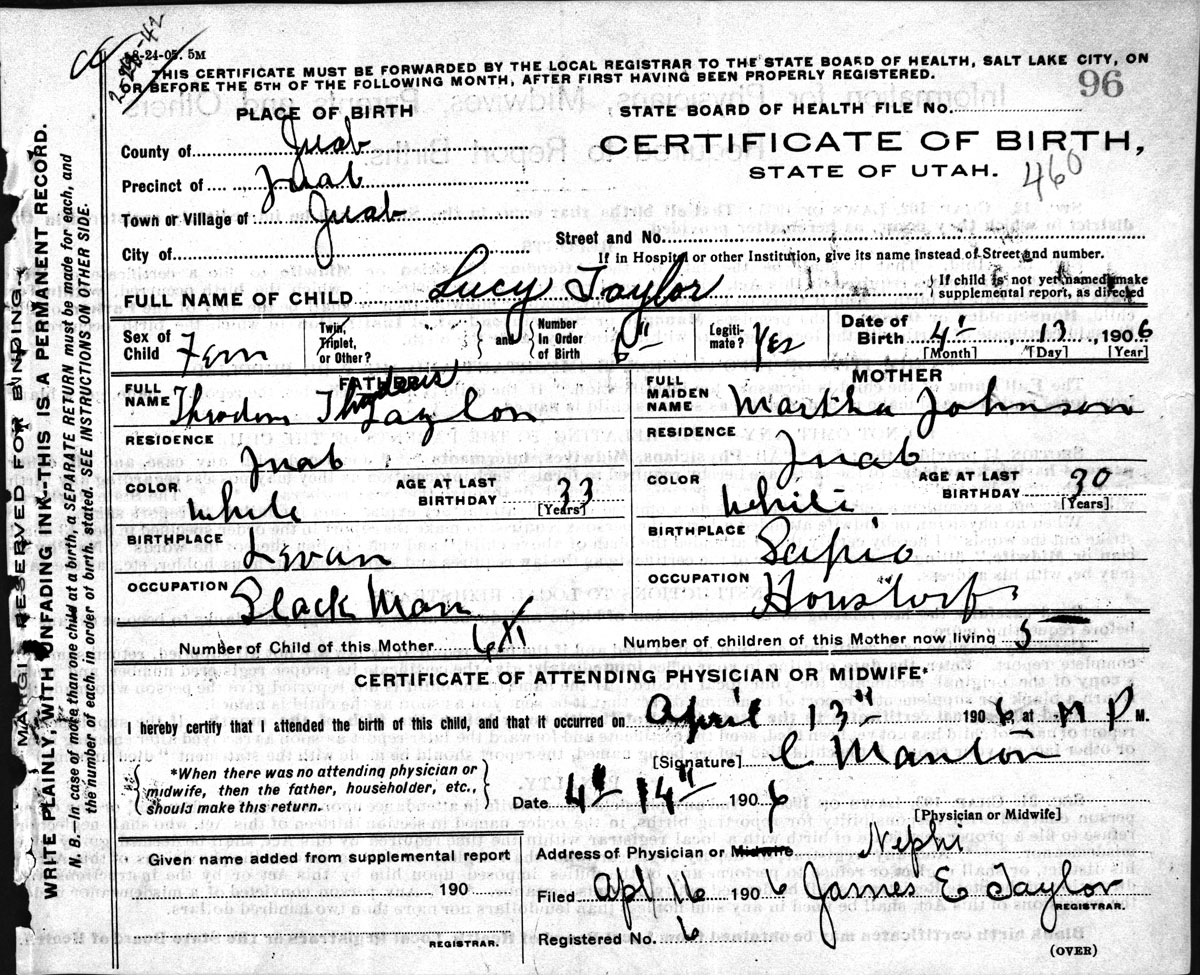 8-24-05. 5M
THIS CERTIFICATE MUST BE FORWARDED BY THE LOCAL REGISTRAR TO THE STATE BOARD OF HEALTH, SALT LAKE CITY, ON
OR BEFORE THE 5TH OF THE FOLLOWING MONTH, AFTER FIRST HAVING BEEN PROPERLY REGISTERED.
96
PLACE OF BIRTH
STATE BOARD OF HEALTH FILE NO.
County of Juab
CERTIFICATE OF BIRTH,
STATE OF UTAH.
460
Precinct of Juab
Town or Village of Juab
City of
Street and No.
If in Hospital or other Institution, give its name instead of Street and number.
FULL NAME OF CHILD Lucy Taylor
If child is not yet named make
supplemental report, as directed
Sex of Child Fem
Twin, Triplet, or Other?
and
Number In Order of Birth 6"
Legitimate? Yes
Date of Birth 4", 13, 1906
[Month] [Day] [Year]
FATHER
MOTHER
FULL NAME Theodore Taylor
FULL MAIDEN NAME Martha Johnson
RESIDENCE Juab
RESIDENCE Juab
COLOR White
AGE AT LAST BIRTHDAY 33
[Years]
COLOR White
AGE AT LAST BIRTHDAY 30
[Years]
BIRTHPLACE Levan
BIRTHPLACE Scipio
OCCUPATION
OCCUPATION
Number of Child of this Mother 6
Number of children of this Mother now living 5
CERTIFICATE OF ATTENDING PHYSICIAN OR MIDWIFE*
I hereby certify that I attended the birth of this child, and that it occurred on April 1906 at M P M.
[Signature] C Manton
*When there was no attending physician or
midwife, then the father, householder, etc.,
should make this return.
Date 4" 14" 1906
[Physician or Midwife]
Given name added from supplemental report
190
REGISTRAR.
Address of Physician or Midwife Nephi
Filed Apl 16 1906 James E Taylor
REGISTRAR.
Registered No. 6
(OVER)
MARGIN RESERVED FOR BINDING.
WRITE PLAINLY, WITH UNFADING INK-THIS IS A PERMANENT RECORD.
N. B.—In case of more than one child at a birth, a SEPARATE RETURN must be made for each, and
the number of each, in order of birth, stated. SEE INSTRUCTIONS ON OTHER SIDE.